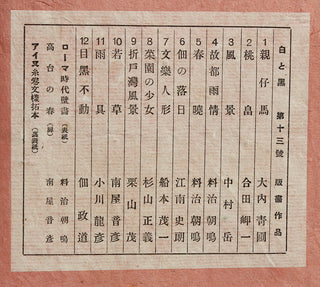 白と黒 第十三號 版畫作品
1 親仔馬 大内青圃
2 桃畠 合田岬一
3 風景 中村岳
4 故都雨情 料治朝鳴
5 春曉 料治朝鳴
6 佃の落日 江南史朗
7 文樂人形 船本茂一
8 菜園の少女 杉山正義
9 折戸灣風景 栗山茂
10 若草 南屋晋彦
11 雨具 小川龍彦
12 目黑不動 佃政道
ローマ時代壁畫(表紙) 料治朝鳴
高台の春(扉) 南屋晋彦
アイヌ糸卷文樣拓本(裏表紙)